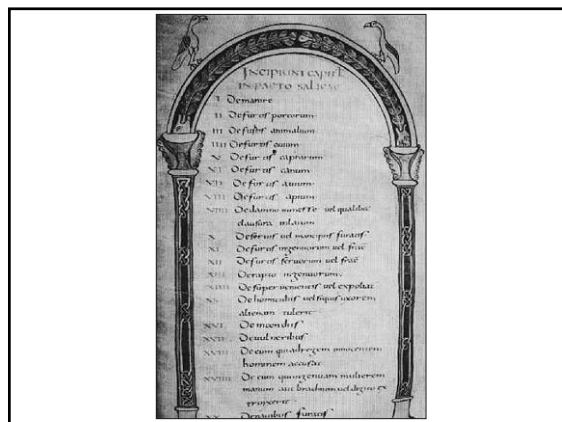 INCIPIUNT CAPIT
IN PACTO SALICAE
I De manire
II De furtis porcorum
III De furtis animalium
IIII De furtis ouium
V De furtis caprarum
VI De furtis canum
VII De furtis auium
VIII De furtis apium
VIIII De damno in messe uel qualibet
clausura
X De seruis uel mancipiis furatis
XI De furtis ingenuorum uel
XII De furtis seruorum uel
XIII De rapto ingenuorum
XIIII De superuenientis uel expoliat
XV De homicidiis uel si quis uxorem
alienam tulerit
XVI De incendiis
XVII De uulneribus
XVIII De eum qui ad regem innocentem
hominem accusat
XVIIII De eum qui ingenuam mulierem
manum aut brachium uel digito ex
XX De nauibus furatis